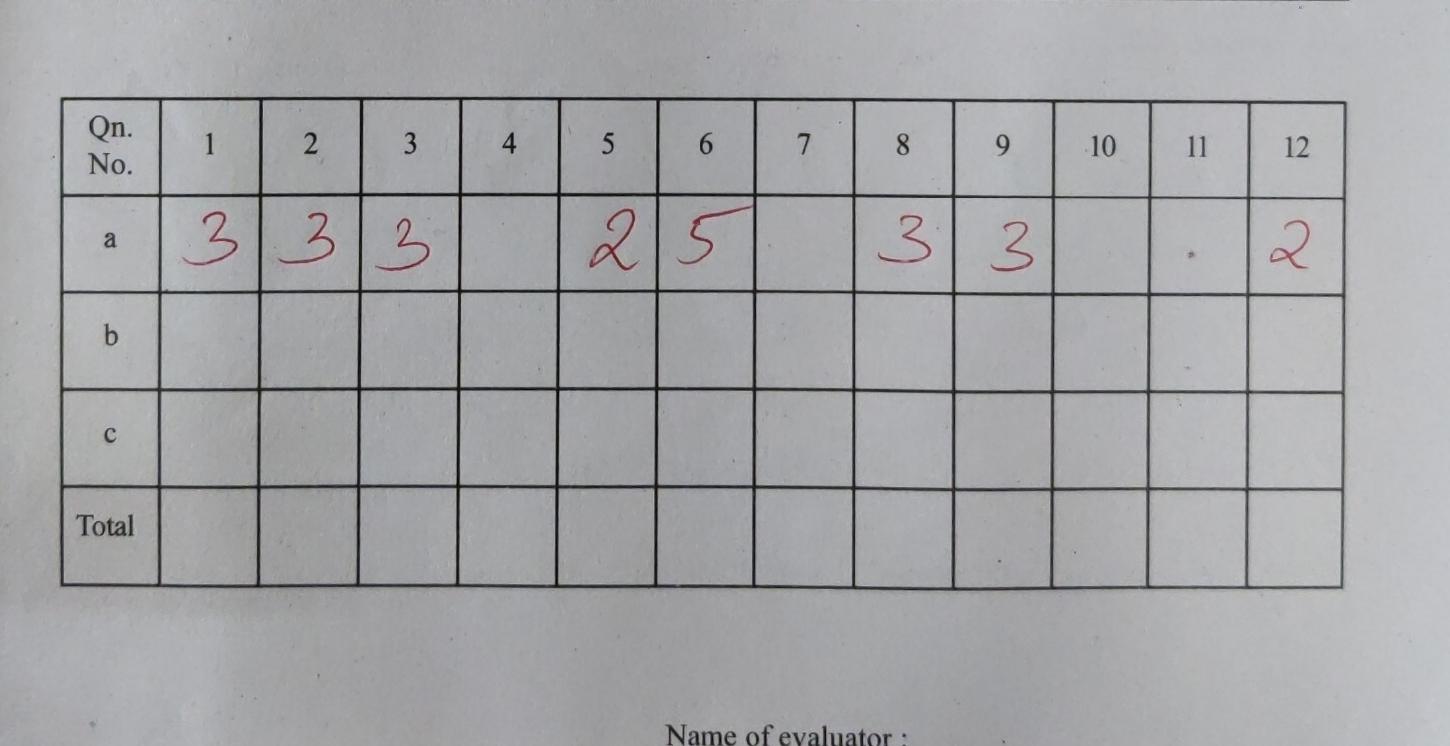 Qn. No. 1 2 3 4 5 6 7 8 9 10 11 12
a 3 3 3 2 5 3 3 . 2
b
c
Total
Name of evaluator :